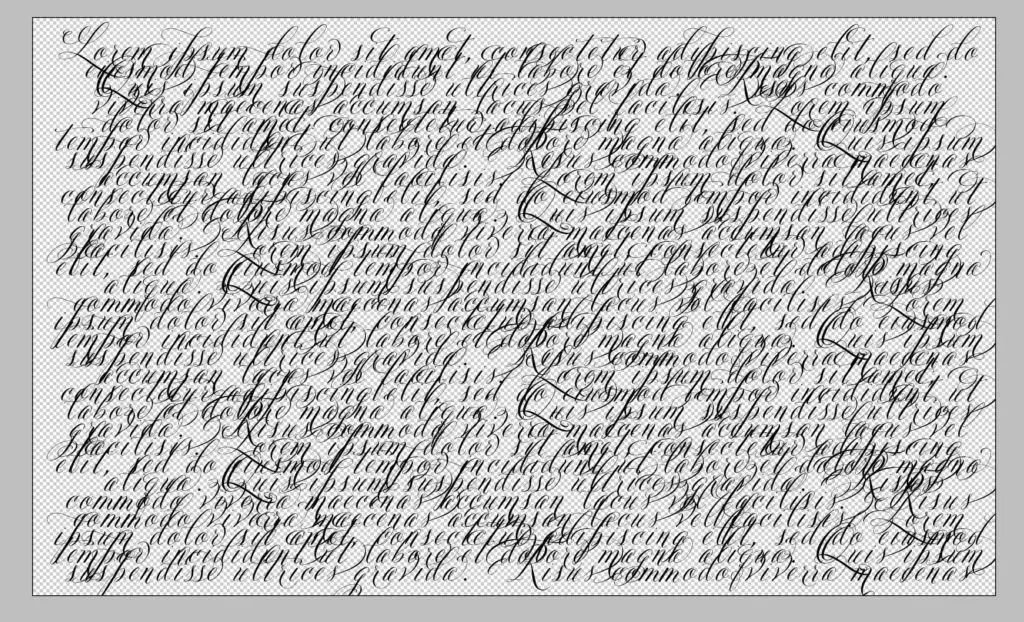 Lorem ipsum dolor sit amet, consectetur adipiscing elit, sed do
eiusmod tempor incididunt ut labore et dolore magna aliqua.
Quis ipsum suspendisse ultrices gravida. Risus commodo
viverra maecenas accumsan lacus vel facilisis. Lorem ipsum
dolor sit amet, consectetur adipiscing elit, sed do eiusmod
tempor incididunt ut labore et dolore magna aliqua. Quis ipsum
suspendisse ultrices gravida. Risus commodo viverra maecenas
accumsan lacus vel facilisis. Lorem ipsum dolor sit amet,
consectetur adipiscing elit, sed do eiusmod tempor incididunt ut
labore et dolore magna aliqua. Quis ipsum suspendisse ultrices
gravida. Risus commodo viverra maecenas accumsan lacus vel
facilisis. Lorem ipsum dolor sit amet, consectetur adipiscing
elit, sed do eiusmod tempor incididunt ut labore et dolore magna
aliqua. Quis ipsum suspendisse ultrices gravida.
commodo viverra maecenas accumsan lacus vel facilisis. Lorem
ipsum dolor sit amet, consectetur adipiscing elit, sed do eiusmod
tempor incididunt ut labore et dolore magna aliqua. Quis ipsum
suspendisse ultrices gravida. Risus commodo viverra maecenas
accumsan lacus vel facilisis. Lorem ipsum dolor sit amet,
consectetur adipiscing elit, sed do eiusmod tempor incididunt ut
labore et dolore magna aliqua. Quis ipsum suspendisse ultrices
gravida. Risus commodo viverra maecenas accumsan lacus vel
facilisis. Lorem ipsum dolor sit amet, consectetur adipiscing
elit, sed do eiusmod tempor incididunt ut labore et dolore magna
aliqua. Quis ipsum suspendisse ultrices gravida.
commodo viverra maecenas accumsan lacus vel facilisis. Risus
commodo viverra maecenas accumsan lacus vel facilisi. Lorem
ipsum dolor sit amet, consectetur adipiscing elit, sed do eiusmod
tempor incididunt ut labore et dolore magna aliqua. Quis ipsum
suspendisse ultrices gravida. Risus commodo viverra maecenas